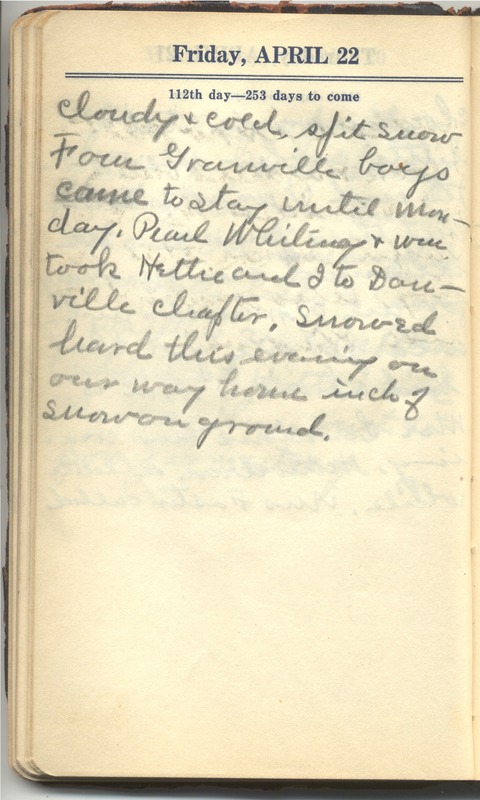 Friday, APRIL 22
112th day—253 days to come
cloudy & cold, spit snow
Four Granville boys
came to stay until Mon-
day. Pearl Whiting & Wm
took Nettie and I to Dan-
ville chapter. Snowed
hard this evening on
our way home inch of
snow on ground.